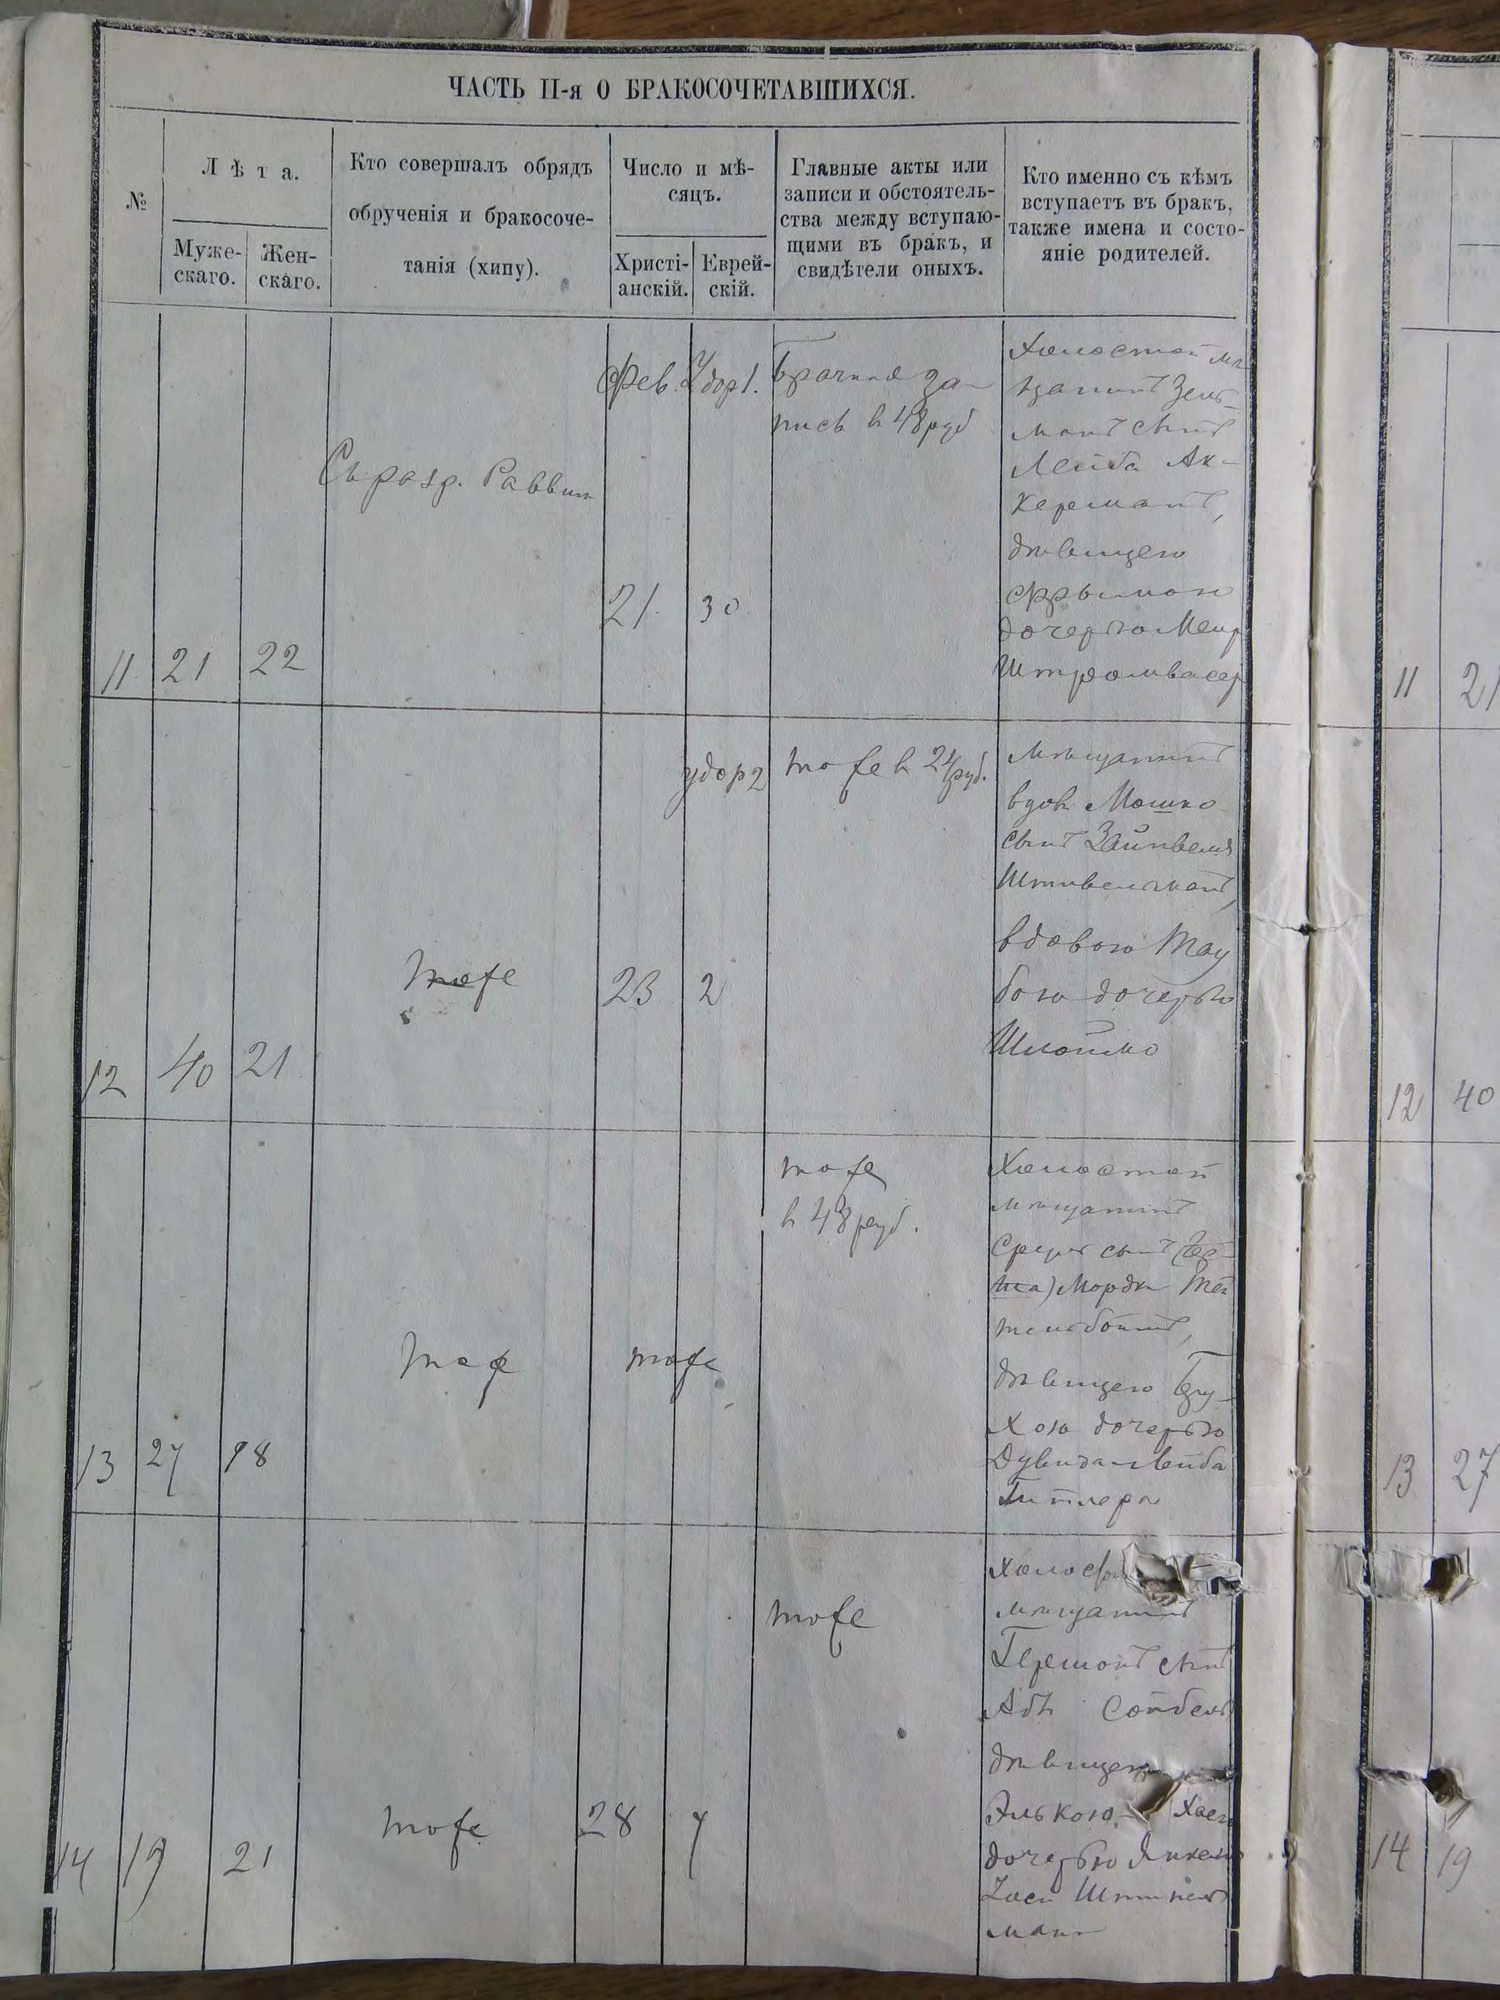 ЧАСТЬ II-я О БРАКОСОЧЕТАВШИХСЯ.
№
Лѣта.
Муже-
скаго.
Жен-
скаго.
Кто совершалъ обрядъ
обрученія и бракосоче-
танія (хипу).
Число и мѣ-
сяцъ.
Христі-
анскій.
Еврей-
скій.
Главные акты или
записи и обстоятель-
ства между вступаю-
щими въ бракъ, и
свидѣтели оныхъ.
Кто именно съ кѣмъ
вступаетъ въ бракъ,
также имена и состо-
яніе родителей.
11
21
22
Съ разр. Раввин
Фев.
21
30
Брачная за-
пись в 48 руб
Холостой мѣ
щанинъ Зель-
манъ сынъ
Лейба Ак-
керманъ,
дѣвицею
Фрымою
дочерью Меир
Штромвасер
12
40
21
тоже
23
2
тоже в 24 руб.
мѣщанинъ
вдов Мошко
сынъ Зайнвеля
Штивельманъ,
вдовою Тау
бою дочерью
Шлоймо
13
27
18
тож
тоже
тоже
в 48 руб.
Холостой
мѣщанинъ
Сруль сынъ
Мордк Тей
тельбоймъ,
дѣвицею Бру-
хою дочерью
Дувида-Лейба
Гитлера
14
19
21
тоже
28
7
тоже
Холос
мѣщанинъ
Гершонъ сынъ
Аб Сойбель
дѣвицею
Элькою-
дочерью Янкель
Штипель
ман
11
21
12
40
13
27
14
19